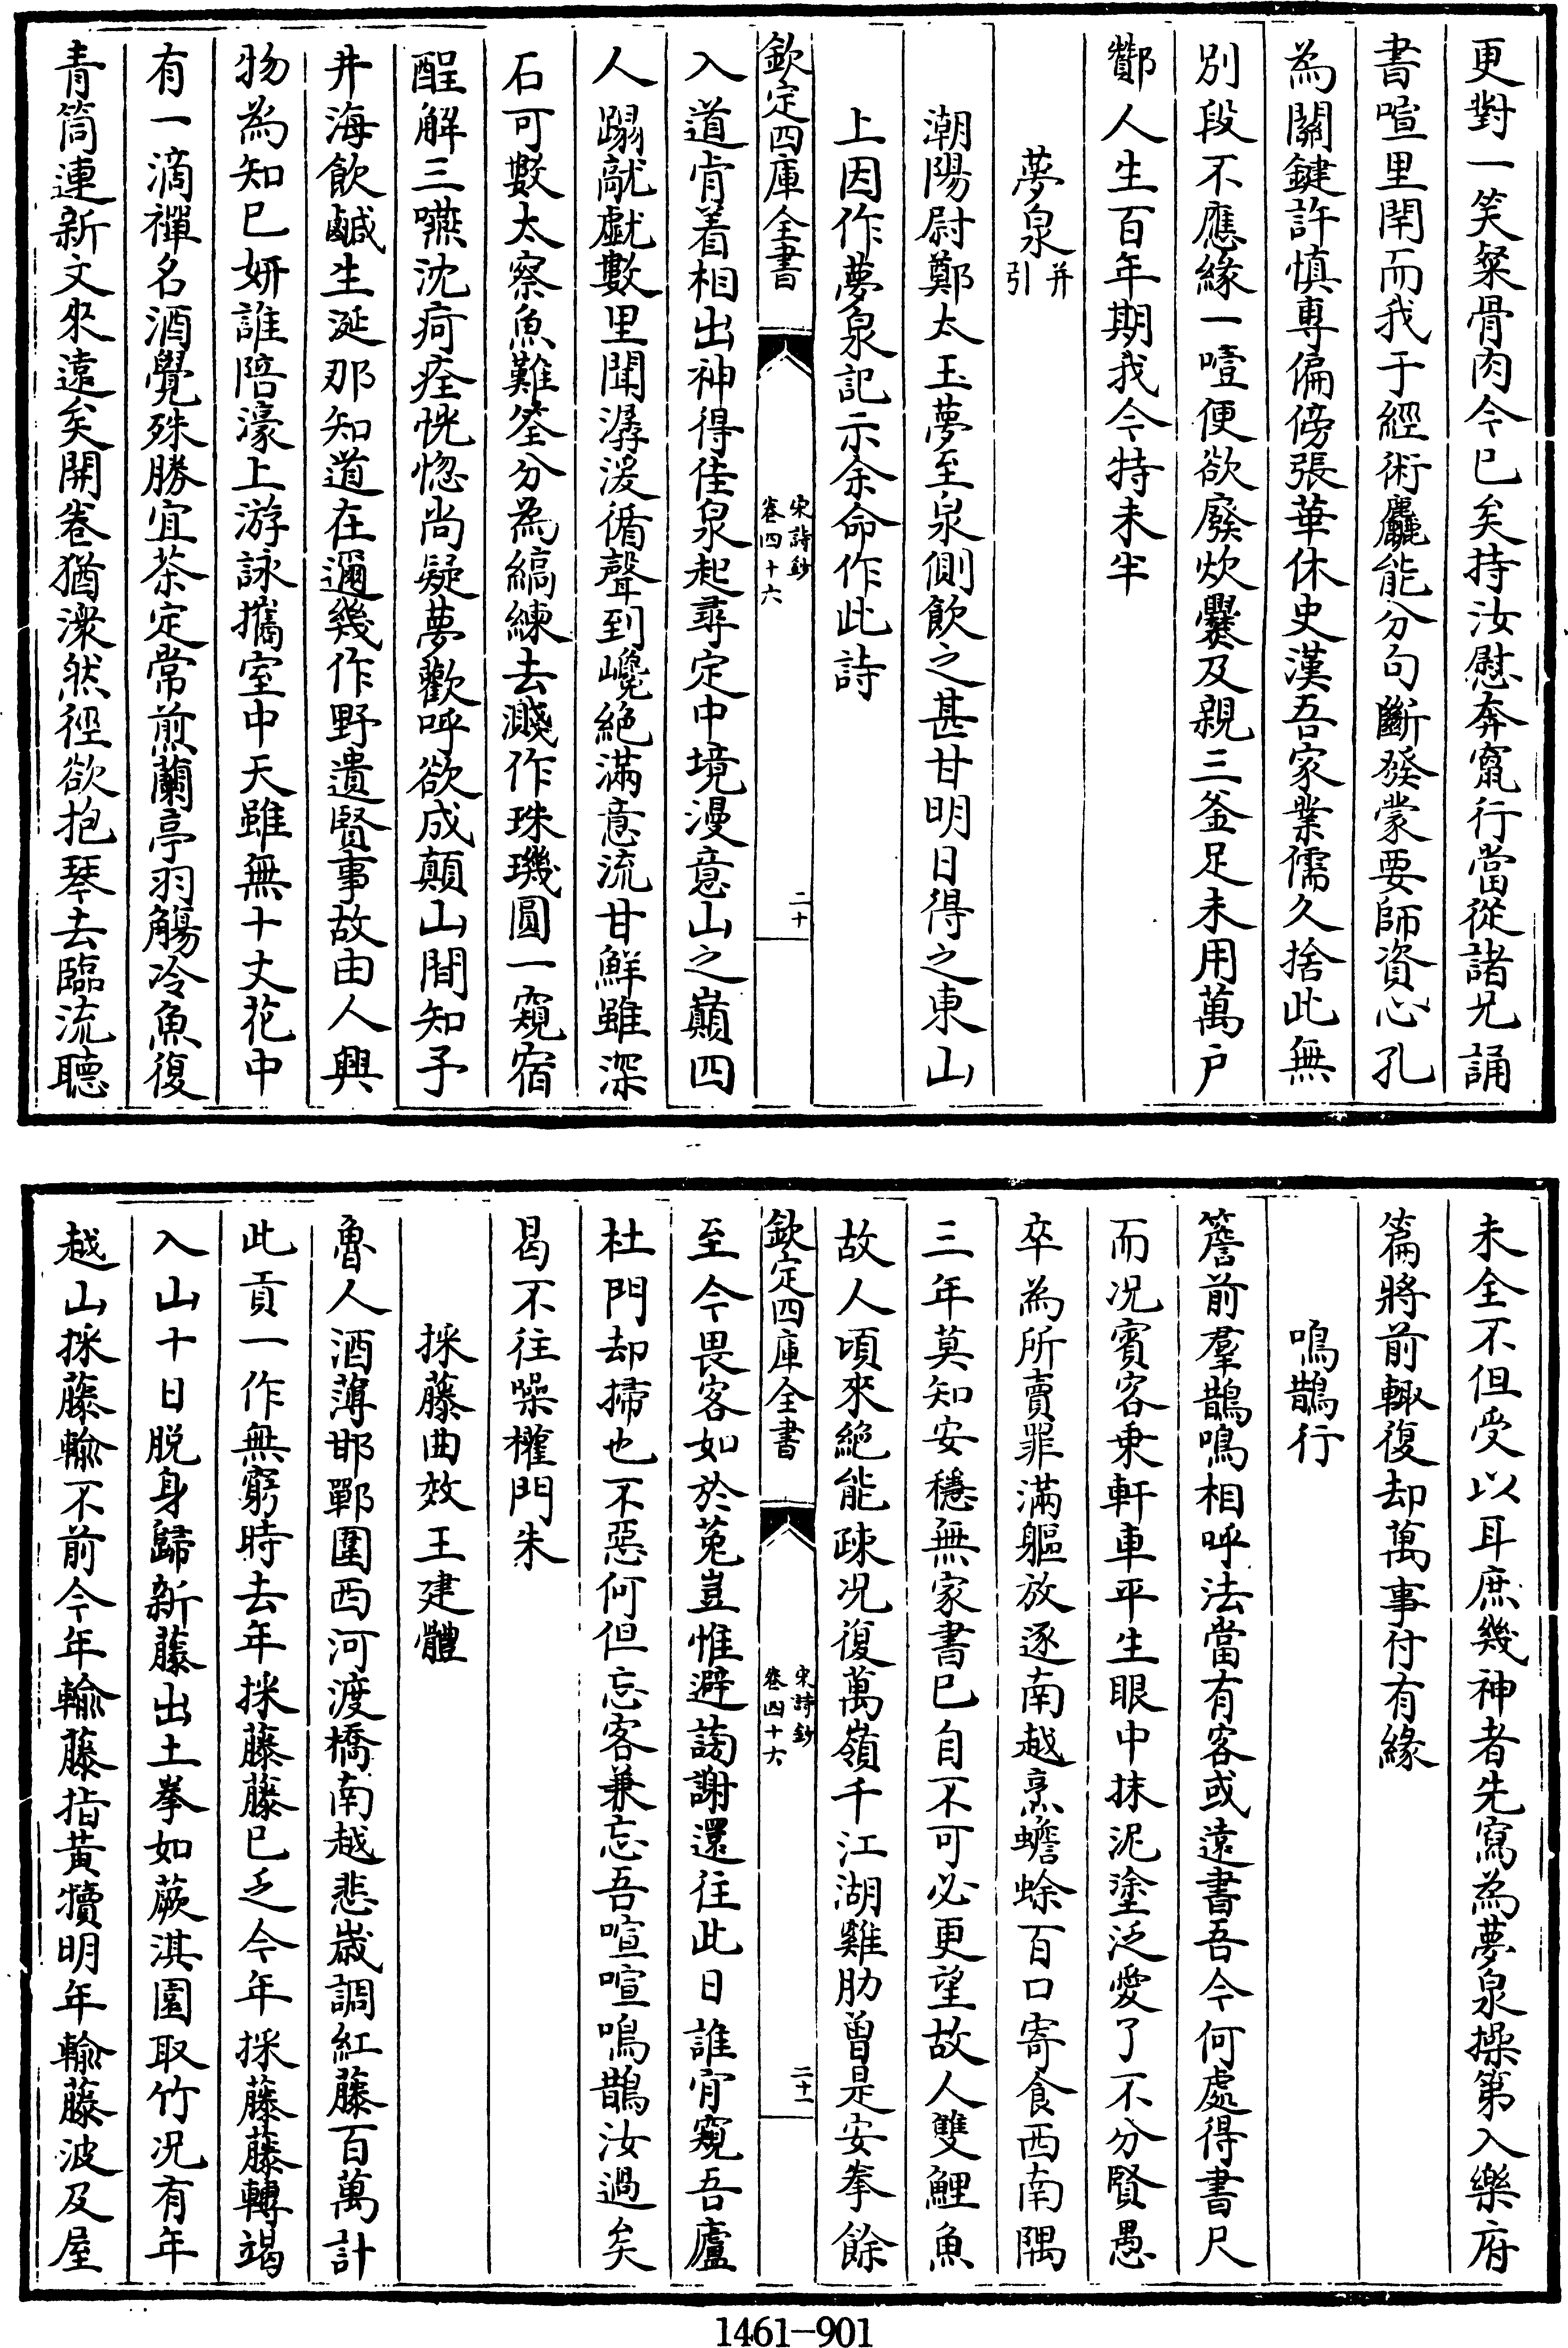 更對一笑粲骨肉今已矣持汝慰奔竄行當從諸兄誦
書喧里閈而我于經術麤能分句斷發蒙要師資心孔
為關鍵許慎專偏傍張華休史漢吾家業儒久捨此無
別段不應緣一噎便欲廢炊爨及親三釜足未用萬戶
酇人生百年期我今特未半
夢泉并引
潮陽尉鄭太玉夢至泉側飲之甚甘明日得之東山
上因作夢泉記示余命作此詩
欽定四庫全書
宋詩鈔
卷四十六
二十
入道肯着相出神得佳泉起尋定中境漫意山之巔四
人蹋㪣戱數里聞潺湲循聲到巉絕滿意流甘鮮雖深
石可數太察魚難筌分為縞練去濺作珠璣圓一窺宿
酲解三嚥沈疴痊恍惚尚疑夢歡呼欲成顛山間知予
井海飲鹹生涎那知道在邇幾作野遺賢事故由人興
物為知已妍誰陪濠上游詠攜室中天雖無十丈花中
有一滴禪名酒覺殊勝宜茶定常煎蘭亭羽觴冷魚復
青筒連新文來遠矣開卷猶濼然徑欲抱琴去臨流聽
未全不但受以耳庶幾神者先寫為夢泉操第入樂府
篇將前輙復却萬事付有緣
鳴鵲行
簷前羣鵲鳴相呼法當有客或遠書吾今何處得書尺
而况賓客乗軒車平生眼中抹泥塗泛愛了不分賢愚
卒為所賣罪滿軀放逐南越烹蟾蜍百口寄食西南隅
三年莫知安穩無家書已自不可必更望故人雙鯉魚
故人頃來絕能疎况復萬嶺千江湖雞肋曽是安拳餘
欽定四庫全書
宋詩鈔
卷四十六
二十一
至今畏客如於菟豈惟避謗謝還往此日誰肯窺吾廬
杜門却掃也不惡何但忘客兼忘吾喧喧鳴鵲汝過矣
曷不往噪權門朱
採藤曲效王建體
魯人酒薄邯鄲圍西河渡橋南越悲嵗調紅藤百萬計
此貢一作無窮時去年採藤藤已乏今年採藤藤轉竭
入山十日脱身歸新藤出土拳如蕨淇園取竹况有年
越山採藤輸不前今年輸藤指黄犢明年輸藤波及屋
1461-901